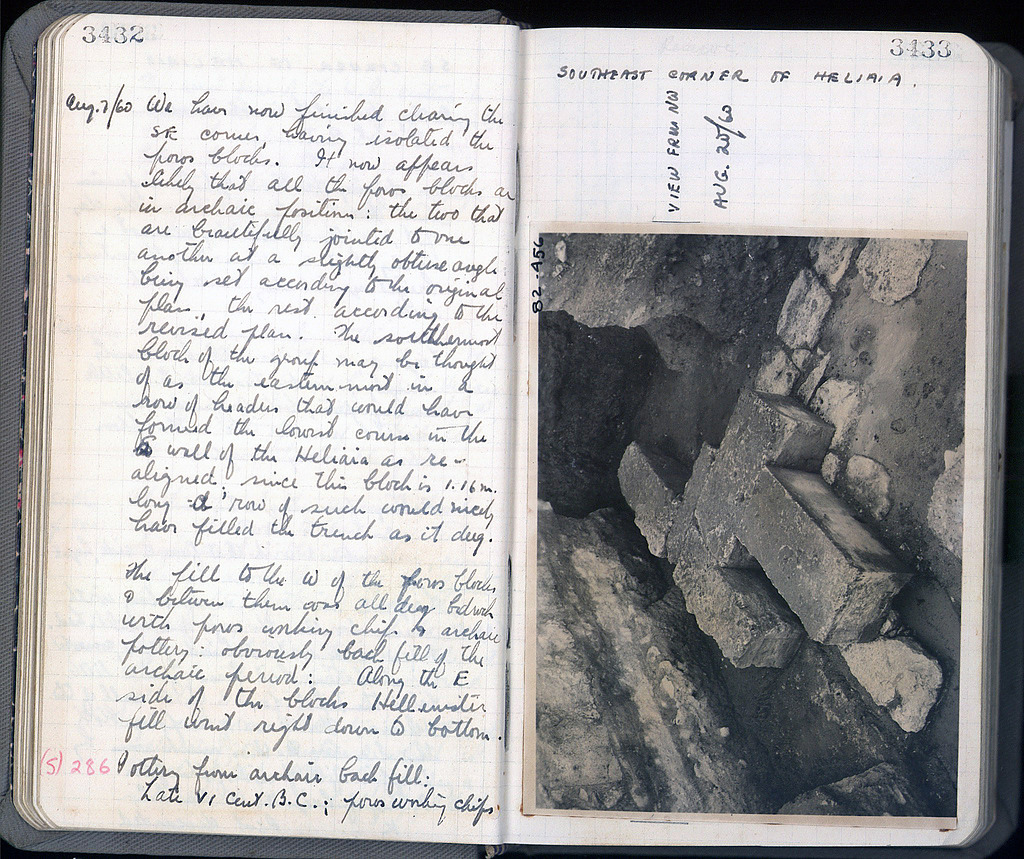 3432
Aug. 7/60 We have now finished clearing the
SE corner, having isolated the
poros blocks. It now appears
likely that all the poros blocks are
in archaic position: the two that
are beautifully jointed to one
another at a slightly obtuse angle
being set according to the original
plan, the rest according to the
revised plan. The southernmost
block of the group may be thought
of as the easternmost in a
row of headers that would have
formed the lowest course in the
S wall of the Heliaia as re-
aligned: since this block is 1.16 m.
long a row of such would nicely
have filled the trench as it dug.
The fill to the W of the poros blocks
& between them was all dug bedrock
with poros working chips & archaic
pottery: obviously back fill of the
archaic period: Along the E
side of the blocks Hellenistic
fill went right down to bottom.
(5) 286 Pottery from archaic back fill:
Late VI Cent. B.C.; poros working chips
3433
SOUTHEAST CORNER OF HELIAIA.
VIEW FROM NW
AUG. 20/60
82.456